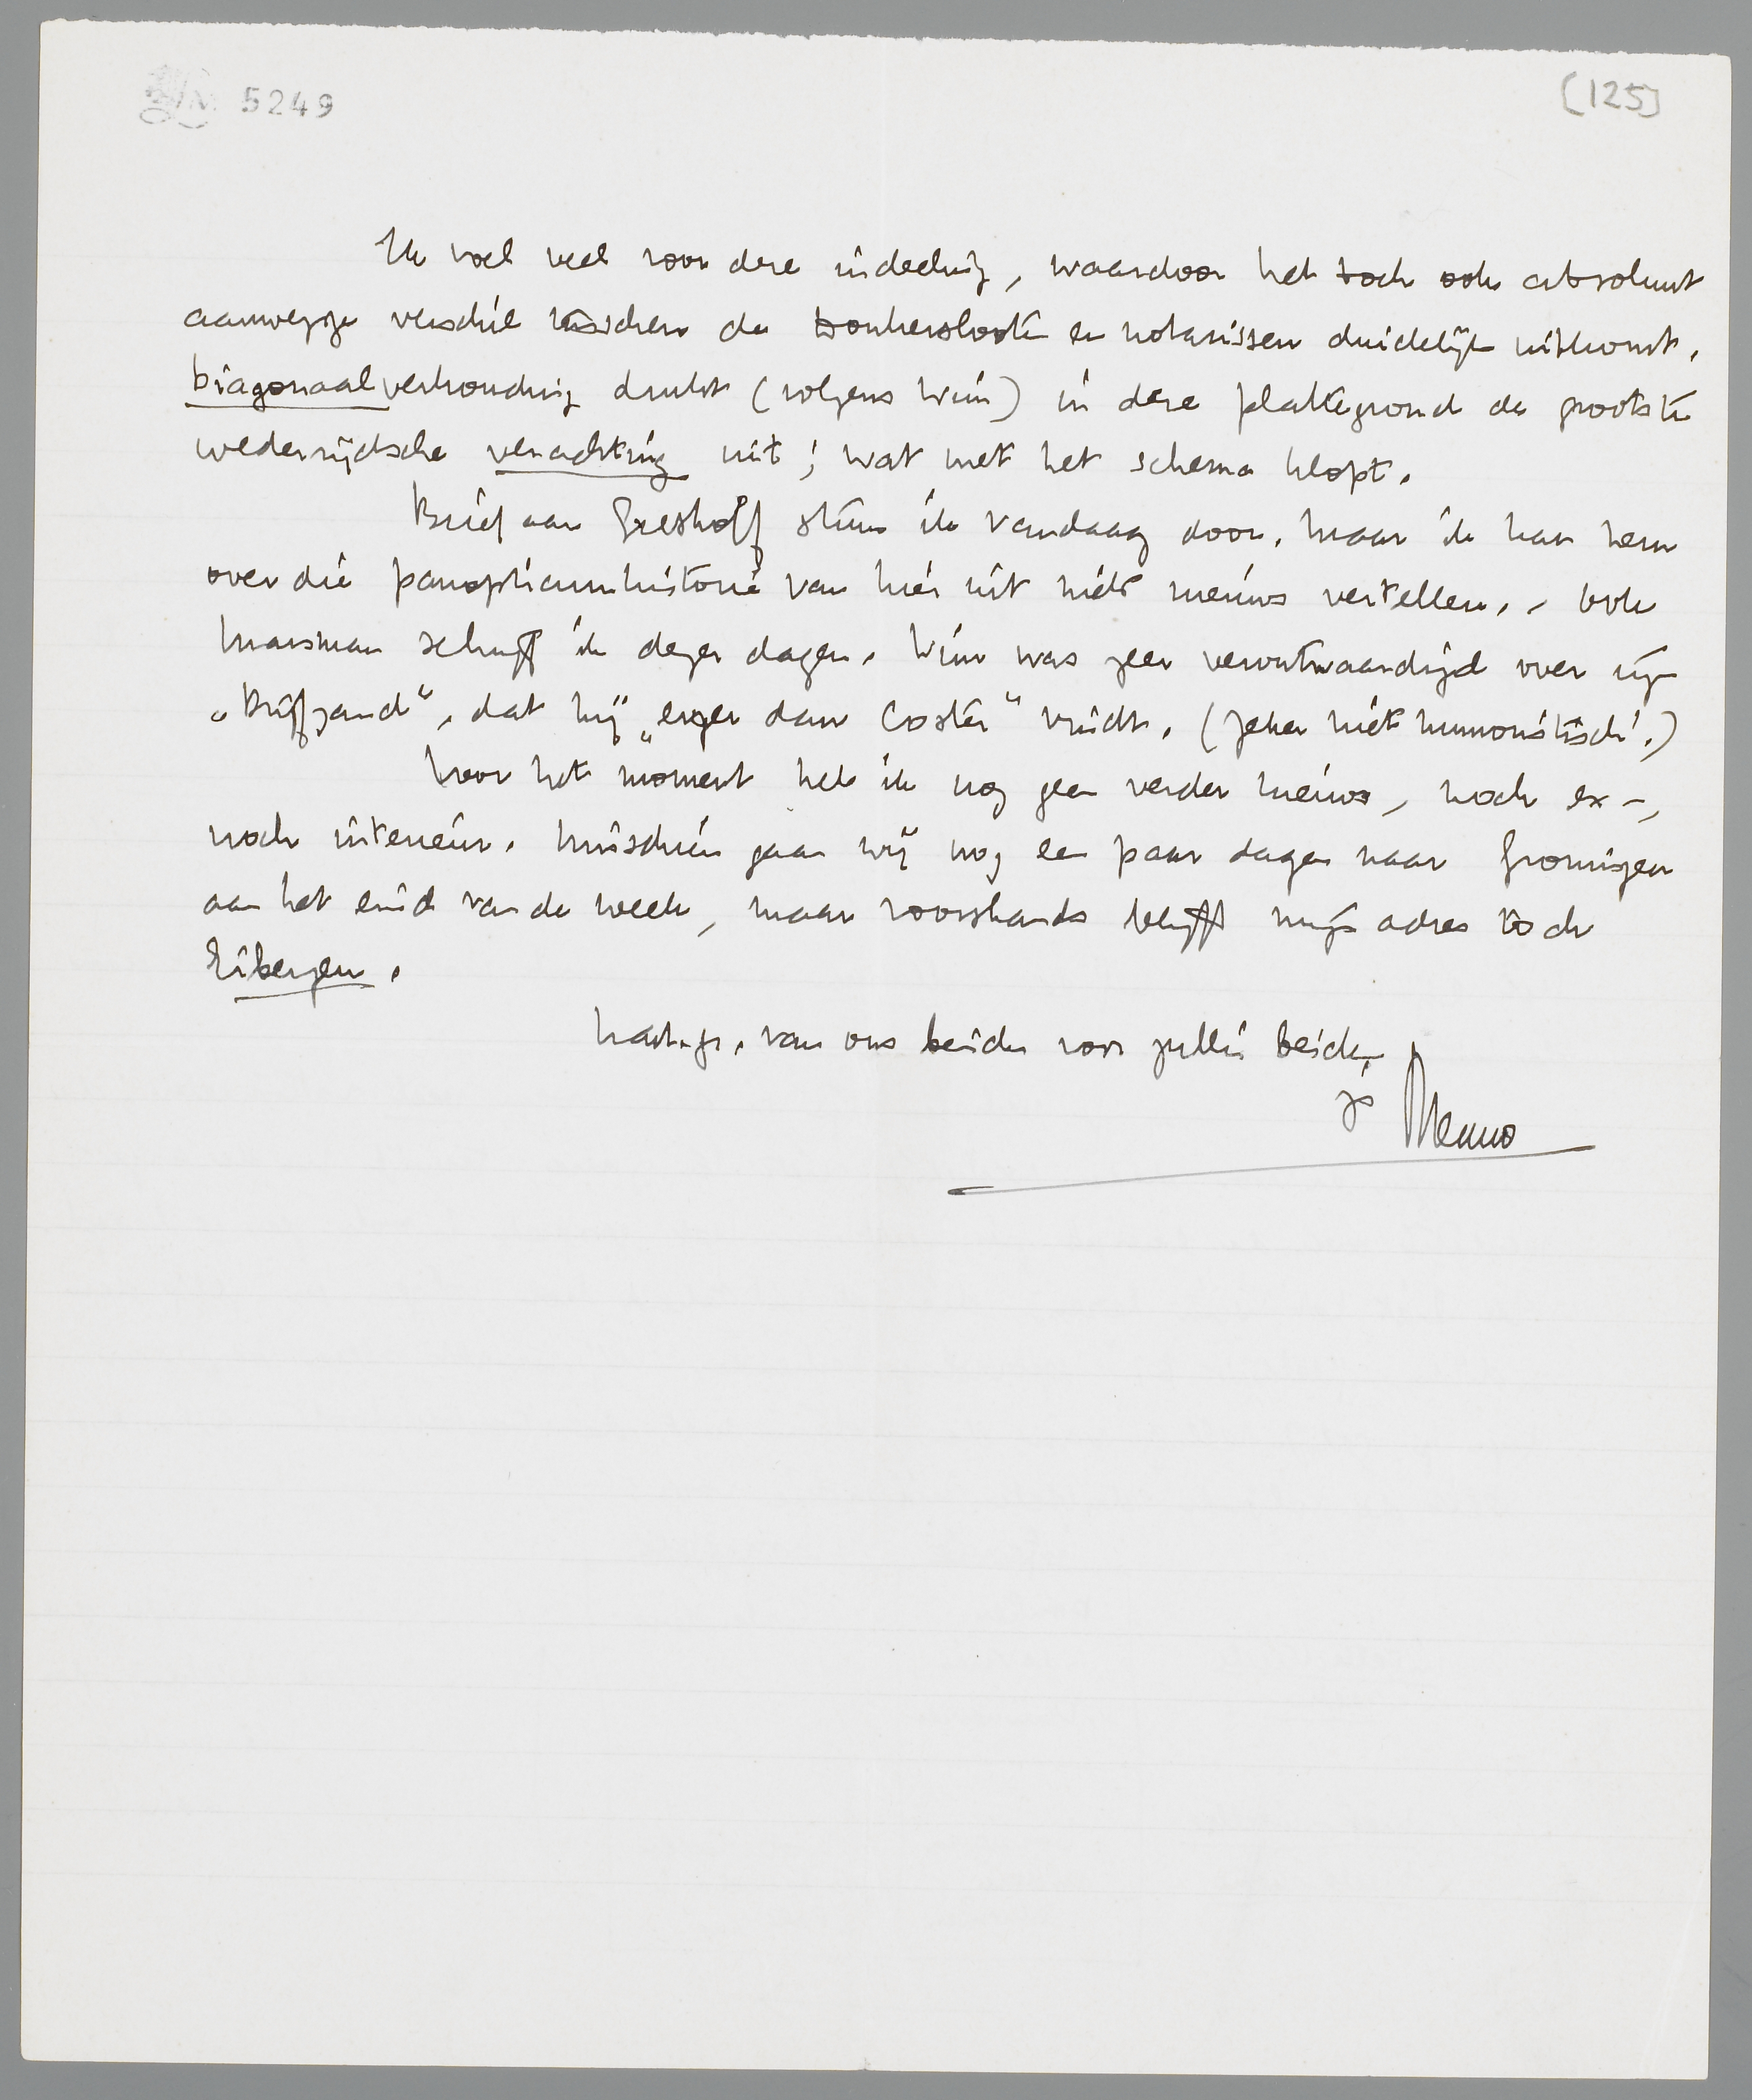 5249
[125]
Ik voel veel voor deze indeeling, waardoor het toch ook absoluut
aanwezige verschil tusschen de Donkersloots en notarissen duidelijk uitkomt.
Diagonaalverhouding drukt (volgens Wim) in deze plattegrond de grootste
wederzijdsche verachting uit; wat met het schema klopt.
Brief aan Greshoff stuur ik vandaag door, maar ik kan hem
over die panopticumhistorie van hier uit niets nieuws vertellen. - Ook
Marsman schrijf ik dezer dagen. Wim was zeer verontwaardigd over zijn
„Drijfzand", dat hij „erger dan Coster" vindt. (Zeker niet humoristisch!)
Voor het moment heb ik nog geen verder nieuws, noch ex-,
noch interieur. Misschien gaan wij nog een paar dagen naar Groningen
aan het eind van de week, maar voorshands blijft mijn adres toch
Eibergen.
Hart. gr. van ons beiden voor jullie beiden,
je Menno